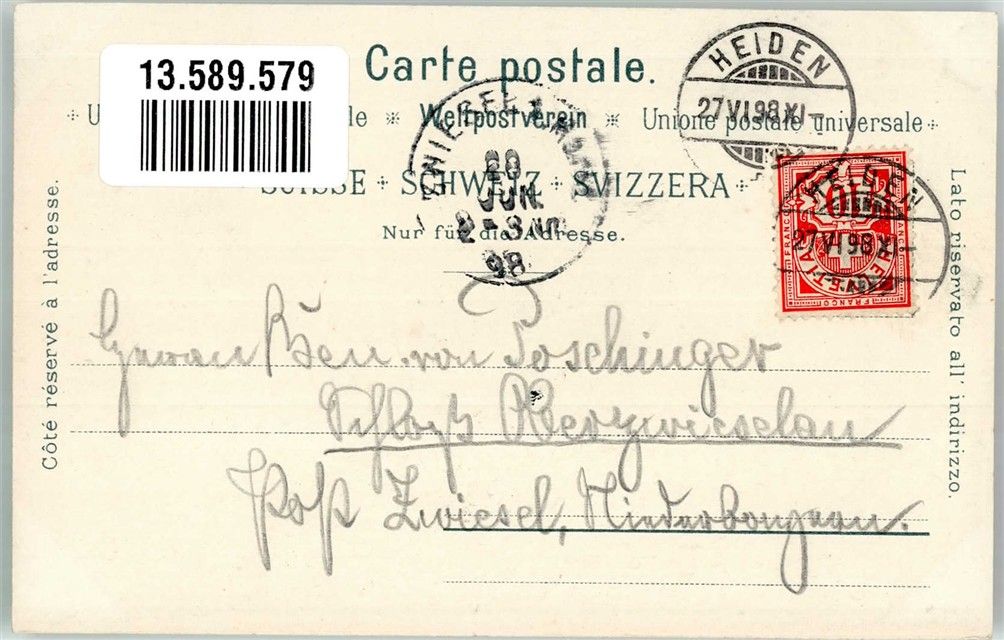 13.589.579
Carte postale.
Weltpostverein ※ Unione postale universale
SUISSE + SCHWEIZ + SVIZZERA
Nur für die Adresse.
Côté réservé à l'adresse.
Lato riservato all' indirizzo.
HEIDEN
27 VI 98 XI–
JUN.
98
HEIDEN
27 VI 98 XI–
10
FRANCO
FRANCO
FRANCO
HELVETIA
Ben. von Poschinger
Schloß Oberzwieselau
Post Zwiesel, Niederbayern.